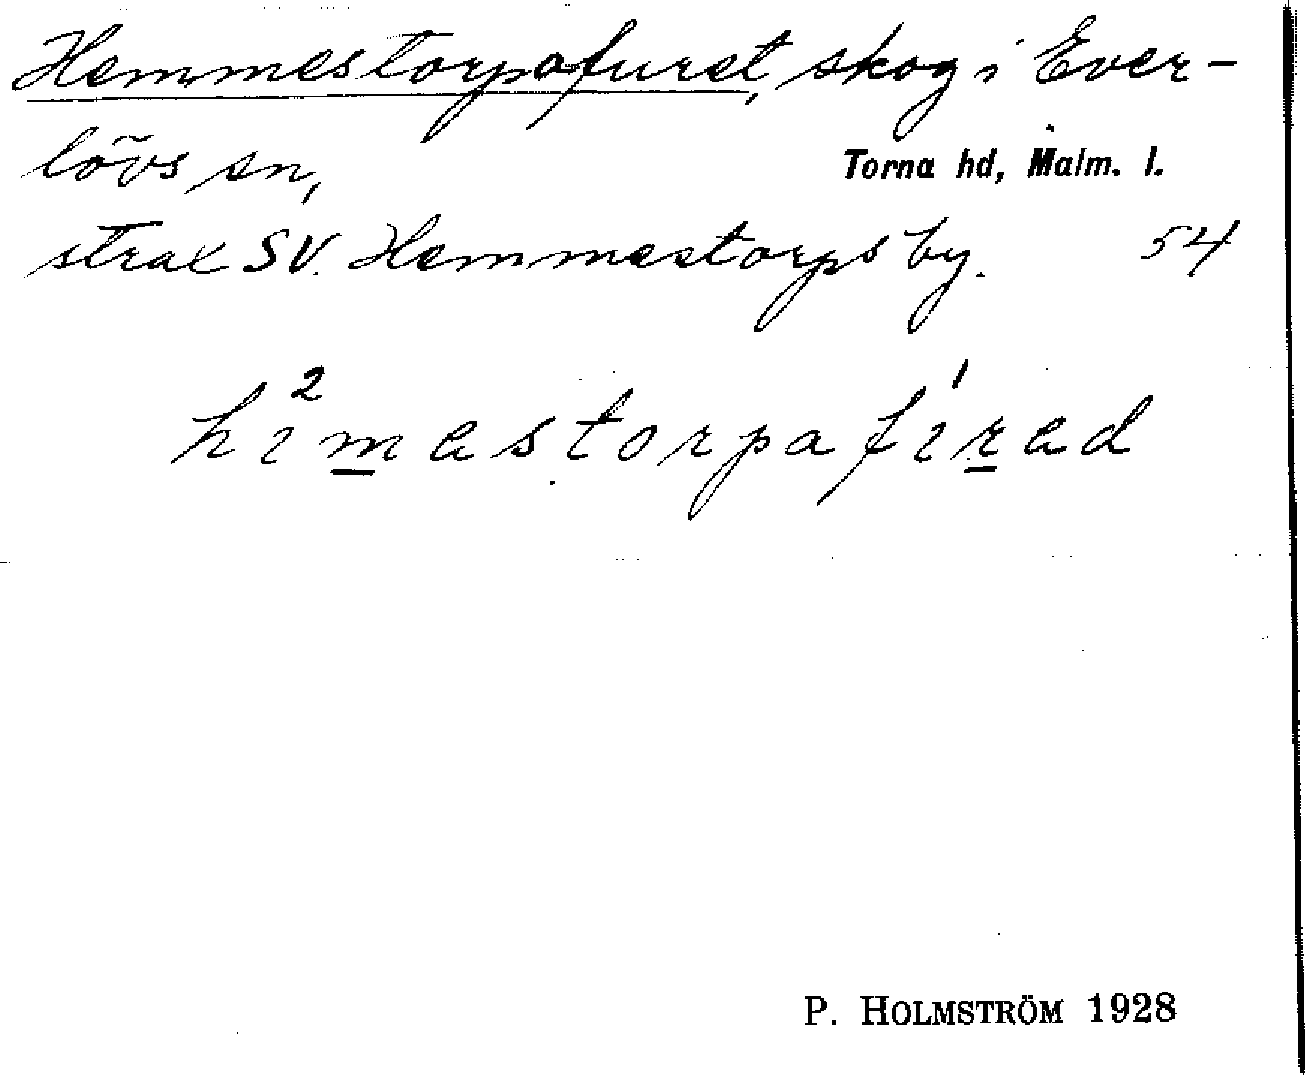 Hemmestorpafuret, skog i Ever-
lövs sn,
Torna hd, Malm. l.
strax SV. Hemmestorps by. 54
hi²mestorpafi¹red
P. HOLMSTRÖM 1928